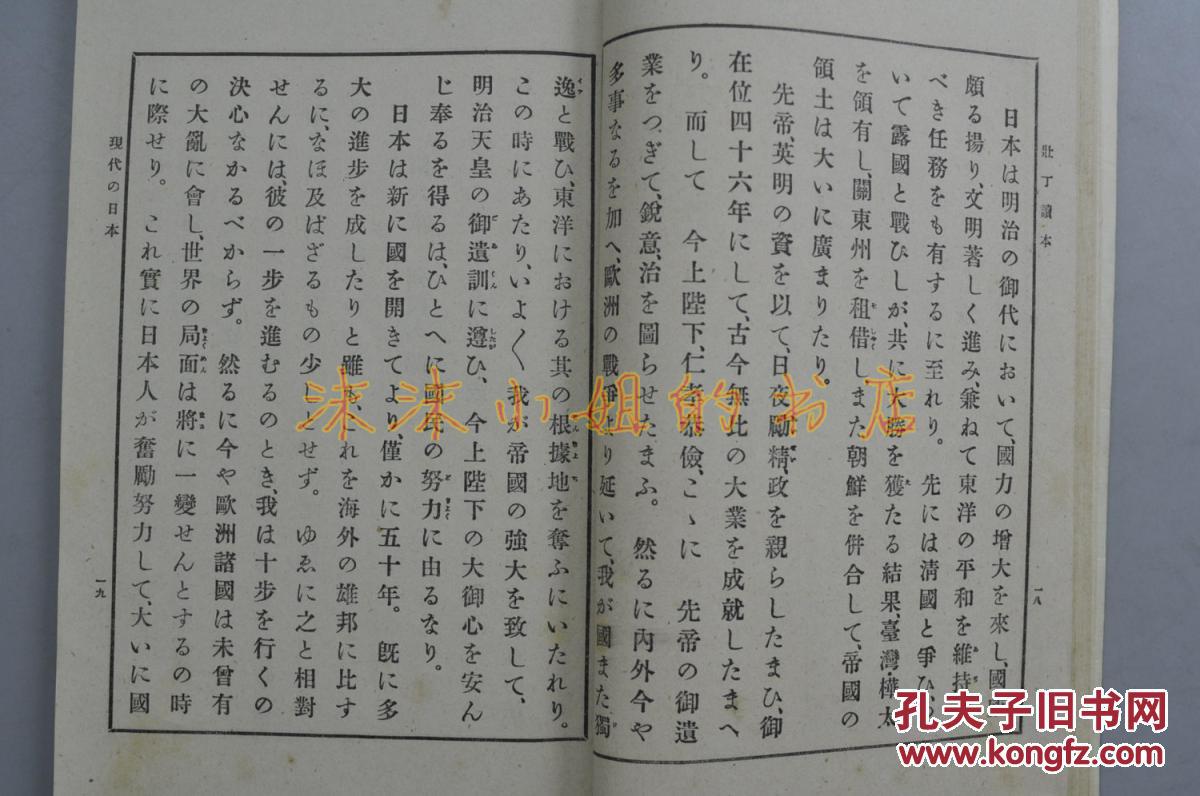 壯丁讀本
一八
日本は明治の御代において、國力の增大を來し、國
頗る揚り、文明著しく進み、兼ねて東洋の平和を維持
べき任務をも有するに至れり。先には淸國と爭ひ、
いて露國と戰ひしが、共に大勝を獲たる結果、臺灣・樺太
を領有し、關東州を租借しまた朝鮮を併合して、帝國の
領土は大いに廣まりたり。
先帝、英明の資を以て、日夜勵精、政を親らしたまひ、御
在位四十六年にして、古今無比の大業を成就したまへ
り。而して 今上陛下、仁孝恭儉、こゝに 先帝の御遺
業をつぎて、銳意、治を圖らせたまふ。然るに內外今や
多事なるを加へ、歐洲の戰爭より延いて、我が國また獨
逸と戰ひ、東洋における其の根據地を奪ふにいたれり。
この時にあたり、いよ〱我が帝國の強大を致して、
明治天皇の御遺訓に遵ひ、今上陛下の大御心を安ん
じ奉るを得るは、ひとへに國民の努力に由るなり。
日本は新に國を開きてより、僅かに五十年。旣に多
大の進步を成したりと雖も、これを海外の雄邦に比す
るに、なほ及ばざるもの少しとせず。ゆゑに之と相對
せんには、彼の一步を進むるのとき、我は十步を行くの
決心なかるべからず。然るに今や歐洲諸國は未曾有
の大亂に會し、世界の局面は將に一變せんとするの時
に際せり。これ實に日本人が奮勵努力して、大いに國
現代の日本
一九
沐沐小姐的书店
孔夫子旧书网
www.kongfz.com